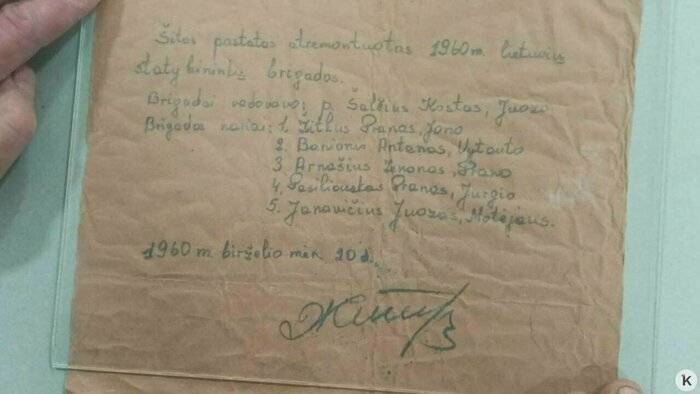 Šitas pastatas atremontuotas 1960 m. lietuvių
statybininkų brigados.
Brigadai vadovavo: p. Šalčius Kostas, Juozo
Brigados nariai: 1. Žitkus Pranas, Jono
2. Banionis Antanas, Vytauto
3 Arnašius Zenonas, Prano
4. Pasiliauskas Pranas, Jurgio
5. Janavičius Juozas, Motėjaus.
1960 m. birželio mėn. 20 d.
K